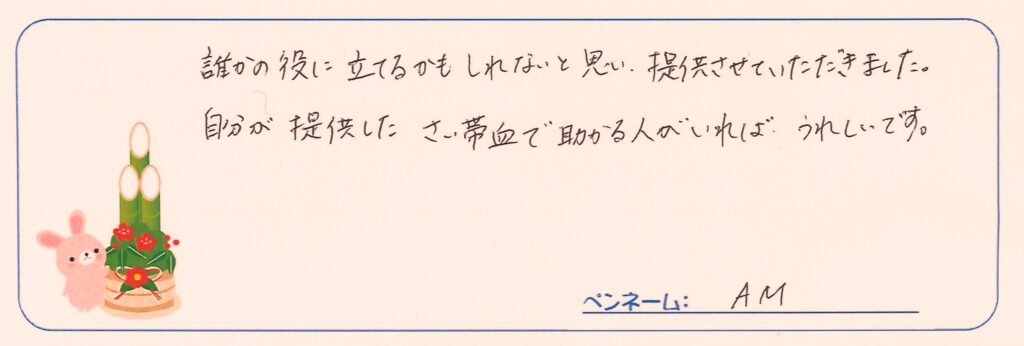 誰かの役に立てるかもしれないと思い、提供させていただきました。
自分が提供したさい帯血で助かる人がいれば、うれしいです。
ペンネーム: AM